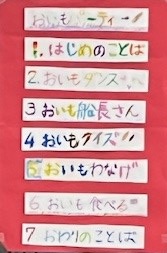 おいもパーティー
1.はじめのことば
2.おいもダンス
3 おいも船長さん
4 おいもクイズ
5 おいもわなげ
6 おいも食べる
7 おわりのことば